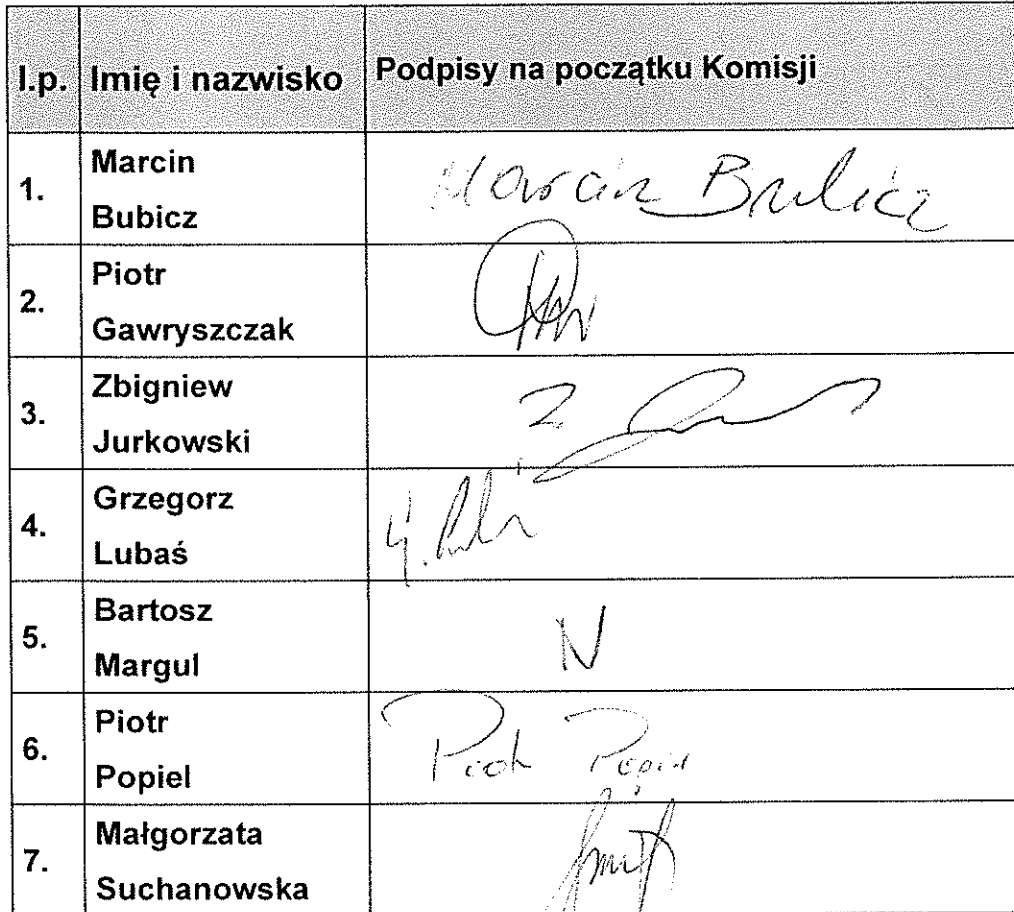 l.p. Imię i nazwisko Podpisy na początku Komisji
1. Marcin Bubicz Marcin Bubicz
2. Piotr Gawryszczak
3. Zbigniew Jurkowski Z.
4. Grzegorz Lubaś
5. Bartosz Margul N
6. Piotr Popiel Piotr Popiel
7. Małgorzata Suchanowska